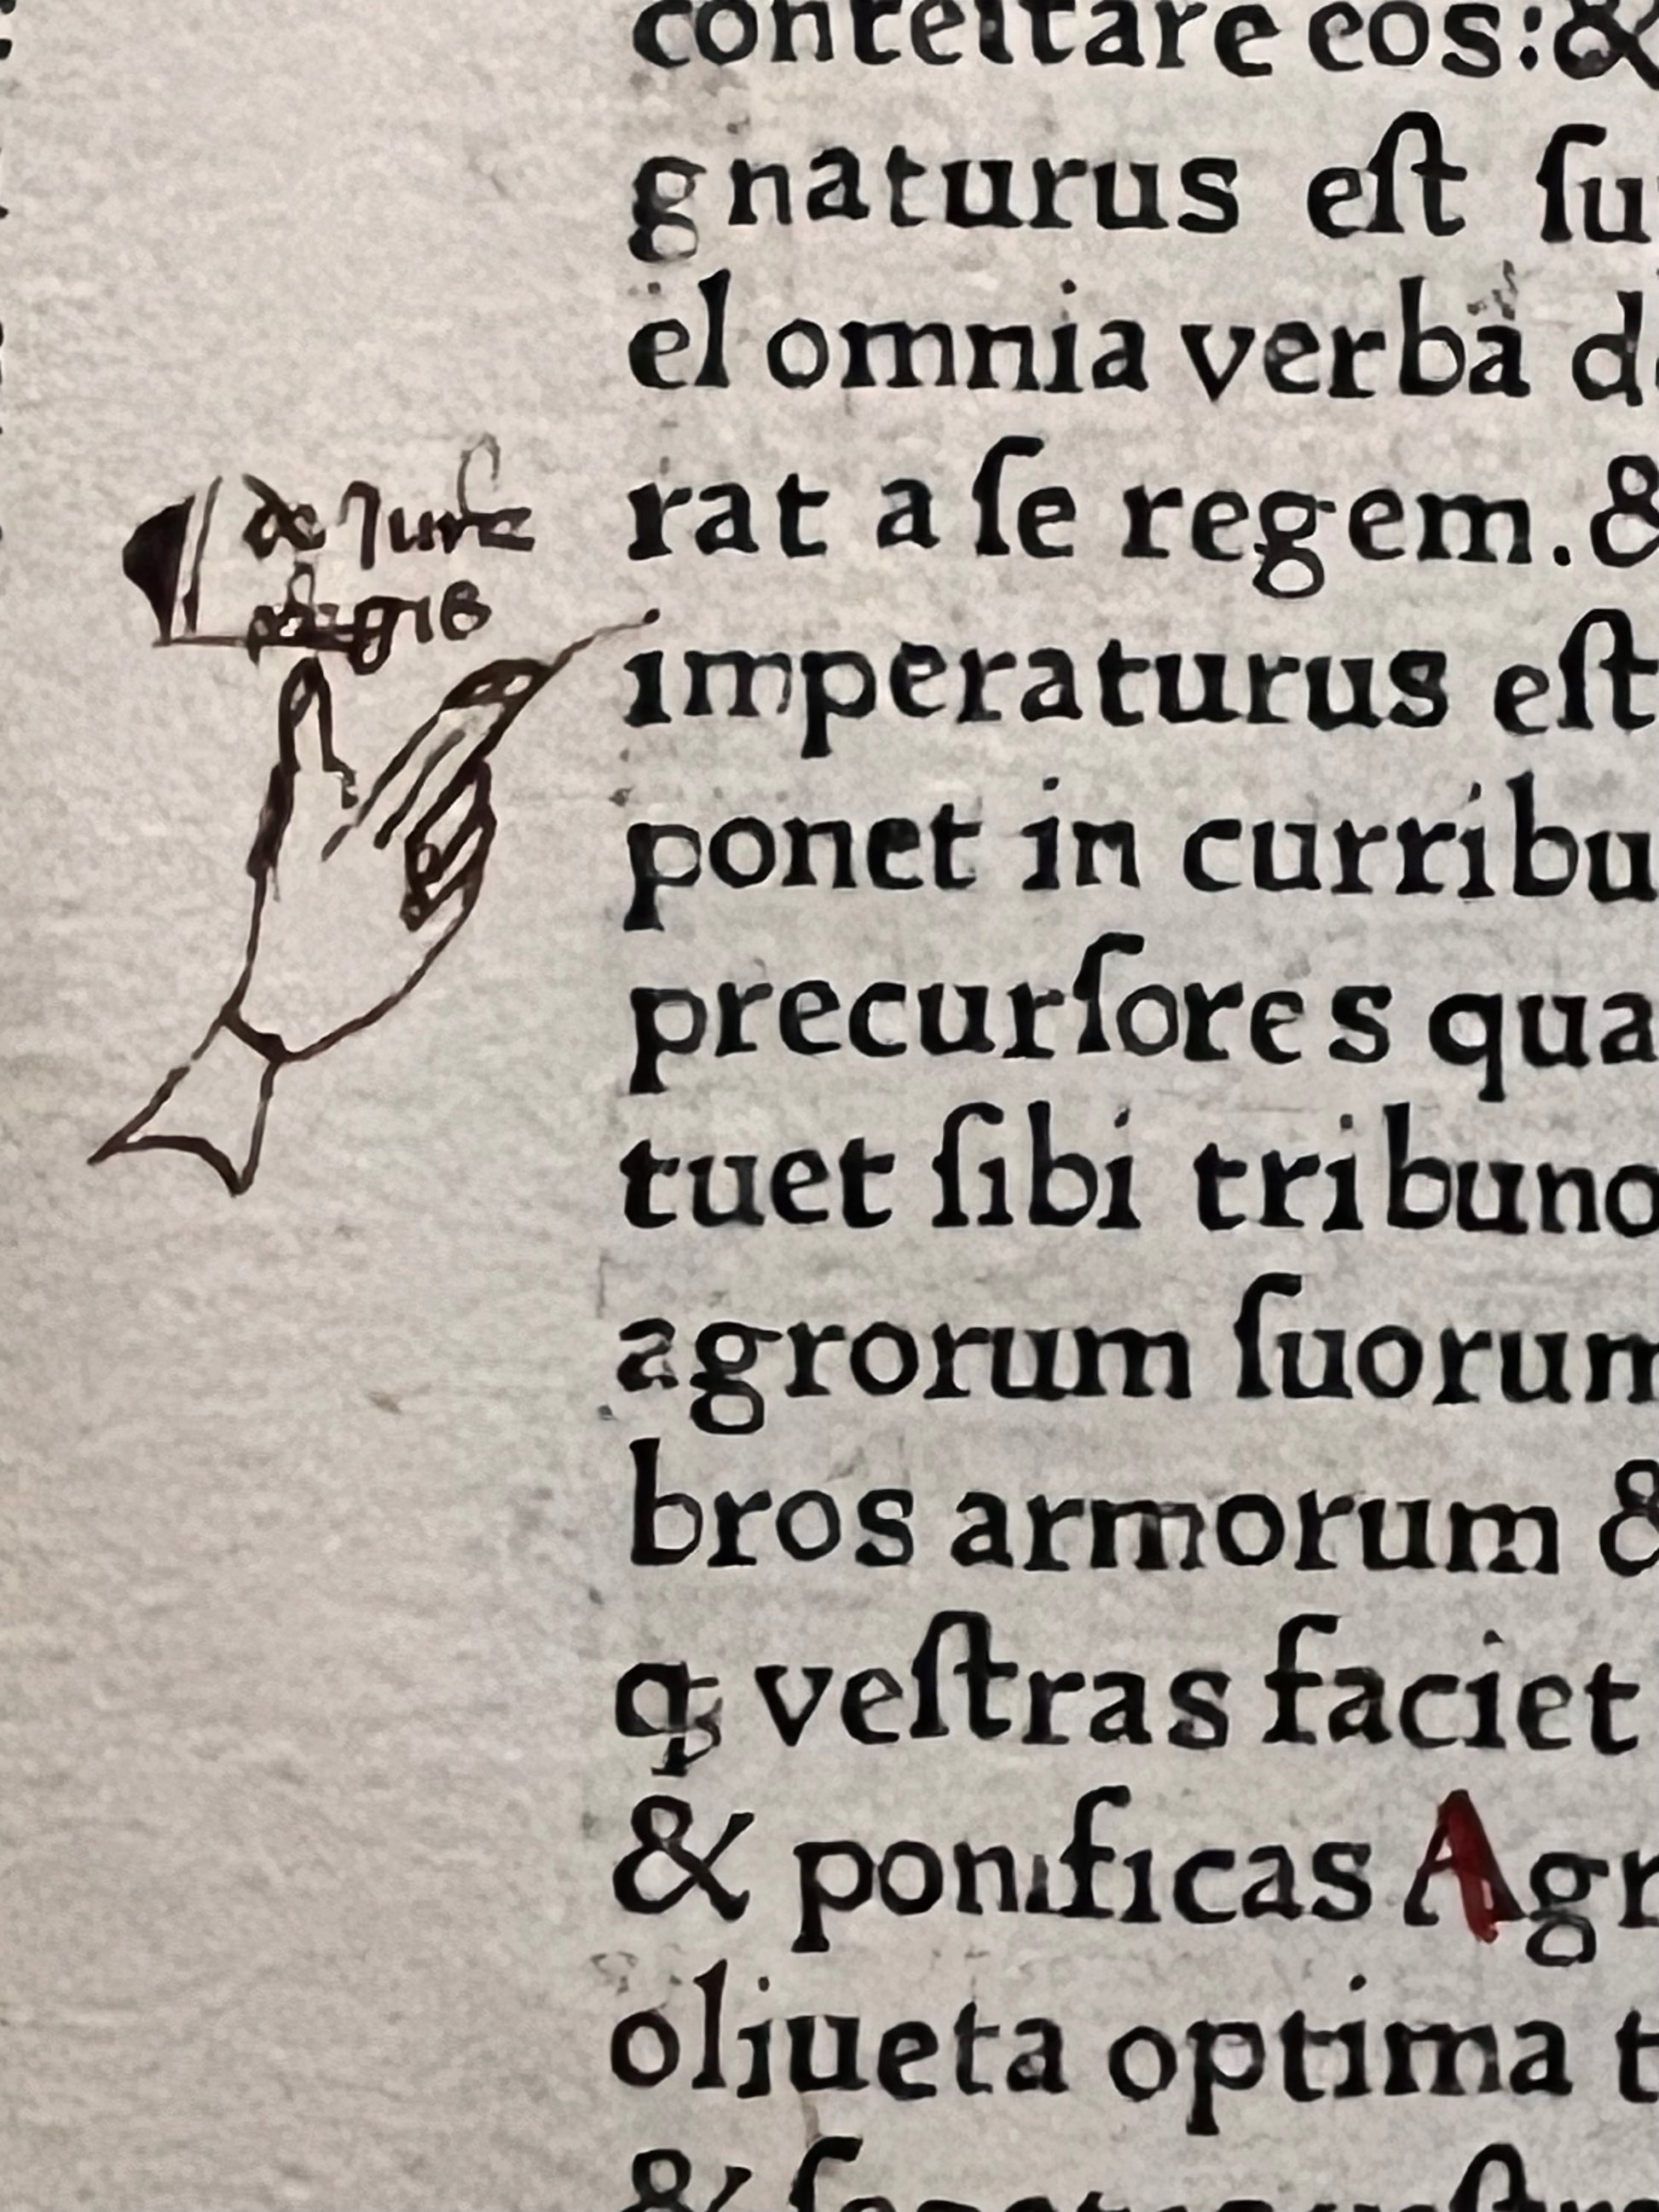 de Jure
regis
conteſtare eos:&
gnaturus eſt ſu
el omnia verba d
rat a ſe regem.&
imperaturus eſt
ponet in curribu
precurſores qua
tuet ſibi tribuno
agrorum ſuorum
bros armorum &
qꝫ veſtras faciet
& ponificas Agr
oliueta optima t